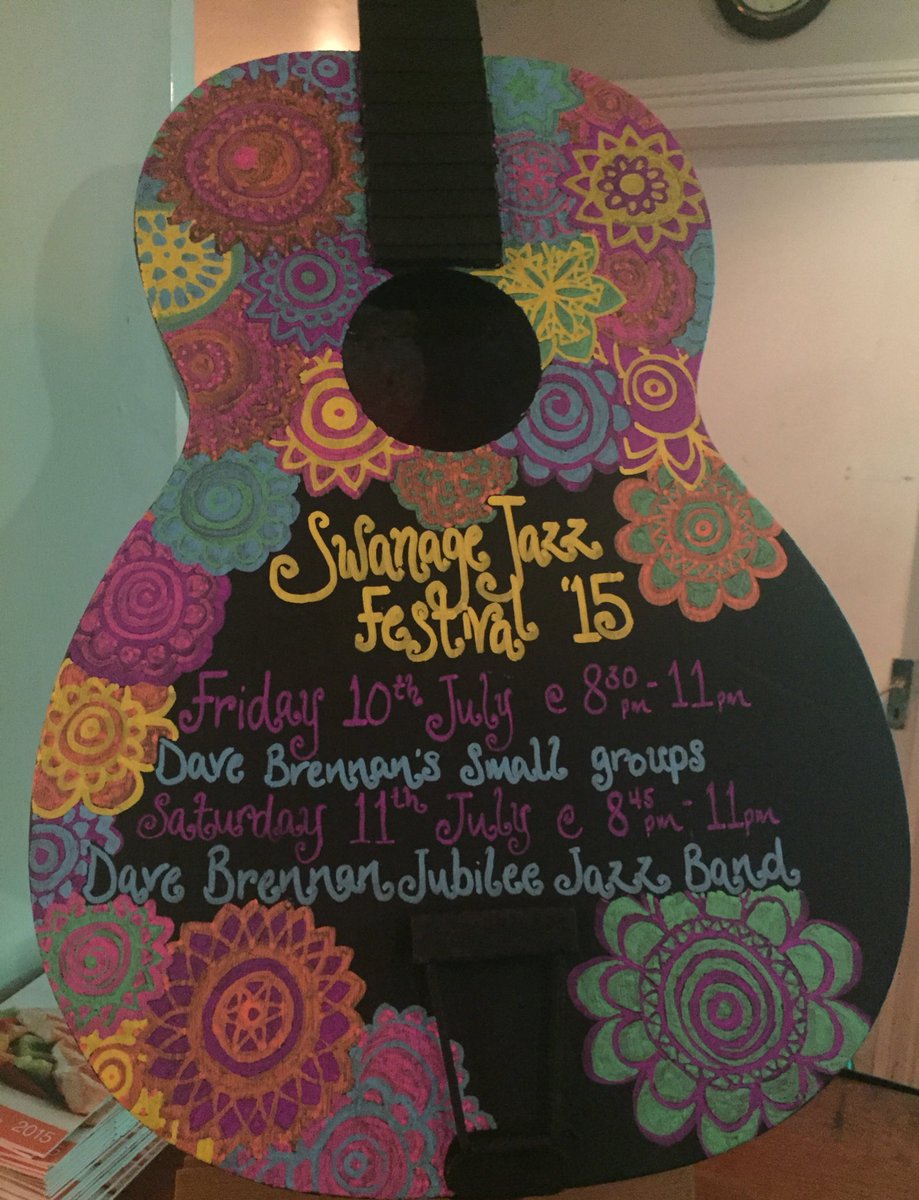 Swanage Jazz
Festival '15
Friday 10th July @ 8 30 pm - 11 pm
Dave Brennan's small groups
Saturday 11th July @ 8 45 pm - 11pm
Dave Brennan Jubilee Jazz Band
2015